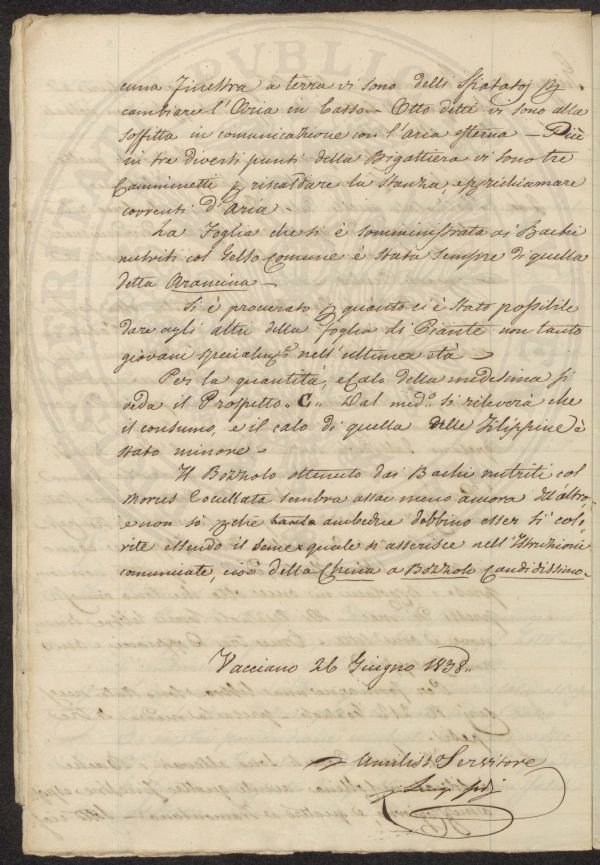 cuna Finestra a terra vi sono delli Sfiatatoj p
cambiare l'Aria in basso — Otto dette vi sono alla
soffitta in comunicazione con l'aria esterna — Più
in tre diversi punti della Bigattiera vi sono tre
Camminetti p riscaldare la stanza, e p richiamare
correnti d'Aria.
La Foglia che si è somministrata ai Bachi
nutriti col Gelso Comune è stata sempre di quella
detta Arancina —
Si è procurato p quanto ci è stato possibile
dare agli altri della foglia di Piante non tanto
giovani specialm.e nell'ultima età —
Per la quantità, e Calo della medesima si
veda il Prospetto „ C „ Dal med.o si rileverà che
il consumo, e il calo di quella delle Filippine è
stato minore.
Il Bozzolo ottenuto dai Bachi nutriti col
Morus Cucullata sembra assai meno
e non so pchè ambedue debbino esser sì colo-
rite essendo il seme quale si asserisce nell'Istruzione
comunicate, cioè della China a Bozzolo Candidissimo —
Vacciano 26 Giugno 1838.
Umiliss Servitore